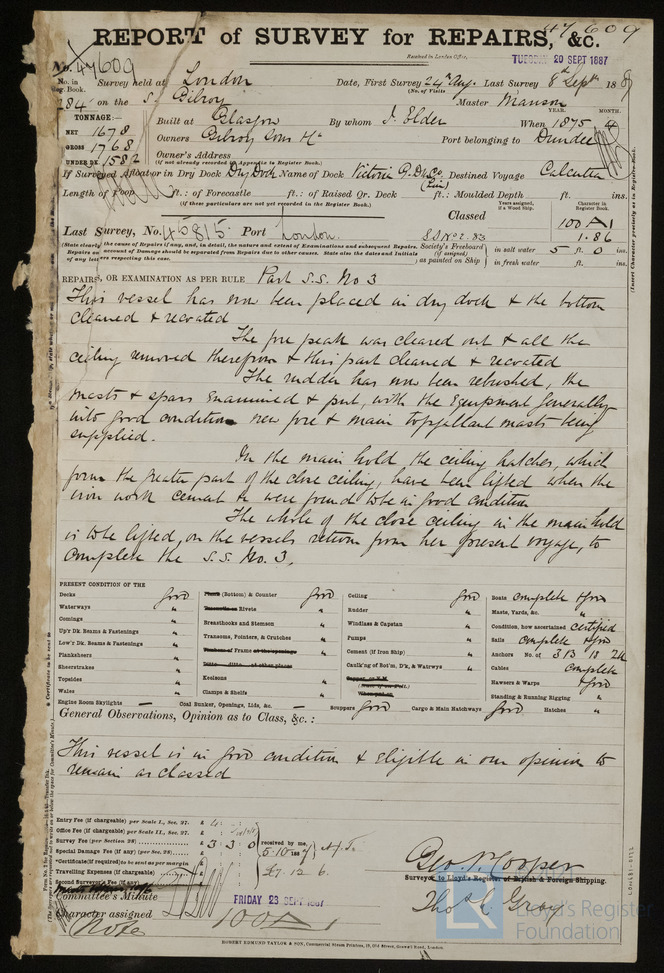 47609
REPORT of SURVEY for REPAIRS, &c.
Received in London Office,
TUESDAY 20 SEPT 1887
No. 47609
No. in Reg. Book. Survey held at London Date, First Survey 24th Aug. Last Survey 8th Septr 188
(No. of Visits
284 on the S. Bilroy Master Manson
TONNAGE:—
YEAR. MONTH.
NET 1678
Built at Glasgow By whom J. Elder When 1875
GROSS 1768
Owners Port belonging to Dundee
UNDER DK 1582
Owner's Address
(If not already recorded in Appendix to Register Book.)
If Surveyed Afloat or in Dry Dock Dry Dock Name of Dock Victoria G. Dk Co. Destined Voyage Calcutta
Length of Poop ft.: of Forecastle ft.: of Raised Qr. Deck ft.: Moulded Depth ft. ins.
(If these particulars are not yet recorded in the Register Book.)
Years assigned, if a Wood Ship. Character in Register Book.
Classed 100 A1
Last Survey, No. 45815 Port London. SS No 2. 83 1.86
(State clearly the causes of Repairs if any, and, in detail, the nature and extent of Examinations and subsequent Repairs. Repairs on account of Damage should be separated from Repairs due to other causes. State also the dates and Initials of any letters respecting this case.
Society's Freeboard (if assigned) as painted on Ship in salt water 5 ft. 0 ins.
in fresh water ft. ins.
REPAIRS, OR EXAMINATION AS PER RULE Part S.S. No 3
This vessel has now been placed in dry dock & the bottom
cleaned & recoated
The fore peak was cleared out & all the
ceiling removed therefrom & this part cleaned & recoated
The rudder has now been rebushed, the
masts & spars examined & put, with the Equipment generally
into good condition new fore & main topgallant masts being
supplied.
In the main hold the ceiling hatches, which
form the greater part of the close ceiling, have been lifted when the
iron work cement &c were found to be in good condition
The whole of the close ceiling in the main hold
is to be lifted, on the vessels return from her present voyage, to
complete the S.S. No. 3.
PRESENT CONDITION OF THE
Decks good
Waterways "
Comings "
Up'r Dk. Beams & Fastenings "
Low'r Dk. Beams & Fastenings "
Planksheers "
Sheerstrakes "
Topsides "
Wales "
Engine Room Skylights —
(Bottom) & Counter good
Rivets "
Breasthooks and Stemson "
Transoms, Pointers, & Crutches "
Frame "
Keelsons "
Clamps & Shelfs "
Coal Bunker, Openings, Lids, &c. —
Ceiling good
Rudder "
Windlass & Capstan "
Pumps "
Cement (if Iron Ship) "
Caulk'ng of Bot'm, D'k, & Watrwys "
Scuppers good Cargo & Main Hatchways good Hatches "
Boats complete & good
Masts, Yards, &c. "
Condition, how ascertained certified
Sails complete & good
Anchors No. of 3 B 1 S 2 K
Cables complete
Hawsers & Warps & good
Standing & Running Rigging "
General Observations, Opinion as to Class, &c.:
This vessel is in good condition & Eligible in our opinion to
remain as classed
Entry Fee (if chargeable) per Scale I., Sec. 27. £
Office Fee (if chargeable) per Scale II., Sec. 27. £
Survey Fee (per Section 28) £ 3 3 0
Special Damage Fee (if any) (per Sec. 28) £
*Certificate (if required) to be sent as per margin
Travelling Expenses (if chargeable) £
Second Surveyor's Fee (if any)
received by me,
5.10.1887
£7. 12 6.
Geo. W. Cooper
Surveyor to Lloyd's Register of British & Foreign Shipping.
Thos. C. Gray
Committee's Minute FRIDAY 23 SEPT 1887
Character assigned 100 A 1
Note
ROBERT EDMUND TAYLOR & SON, Commercial Steam Printers, 19, Old Street, Goswell Road, London.
Lloyd's Register
Foundation